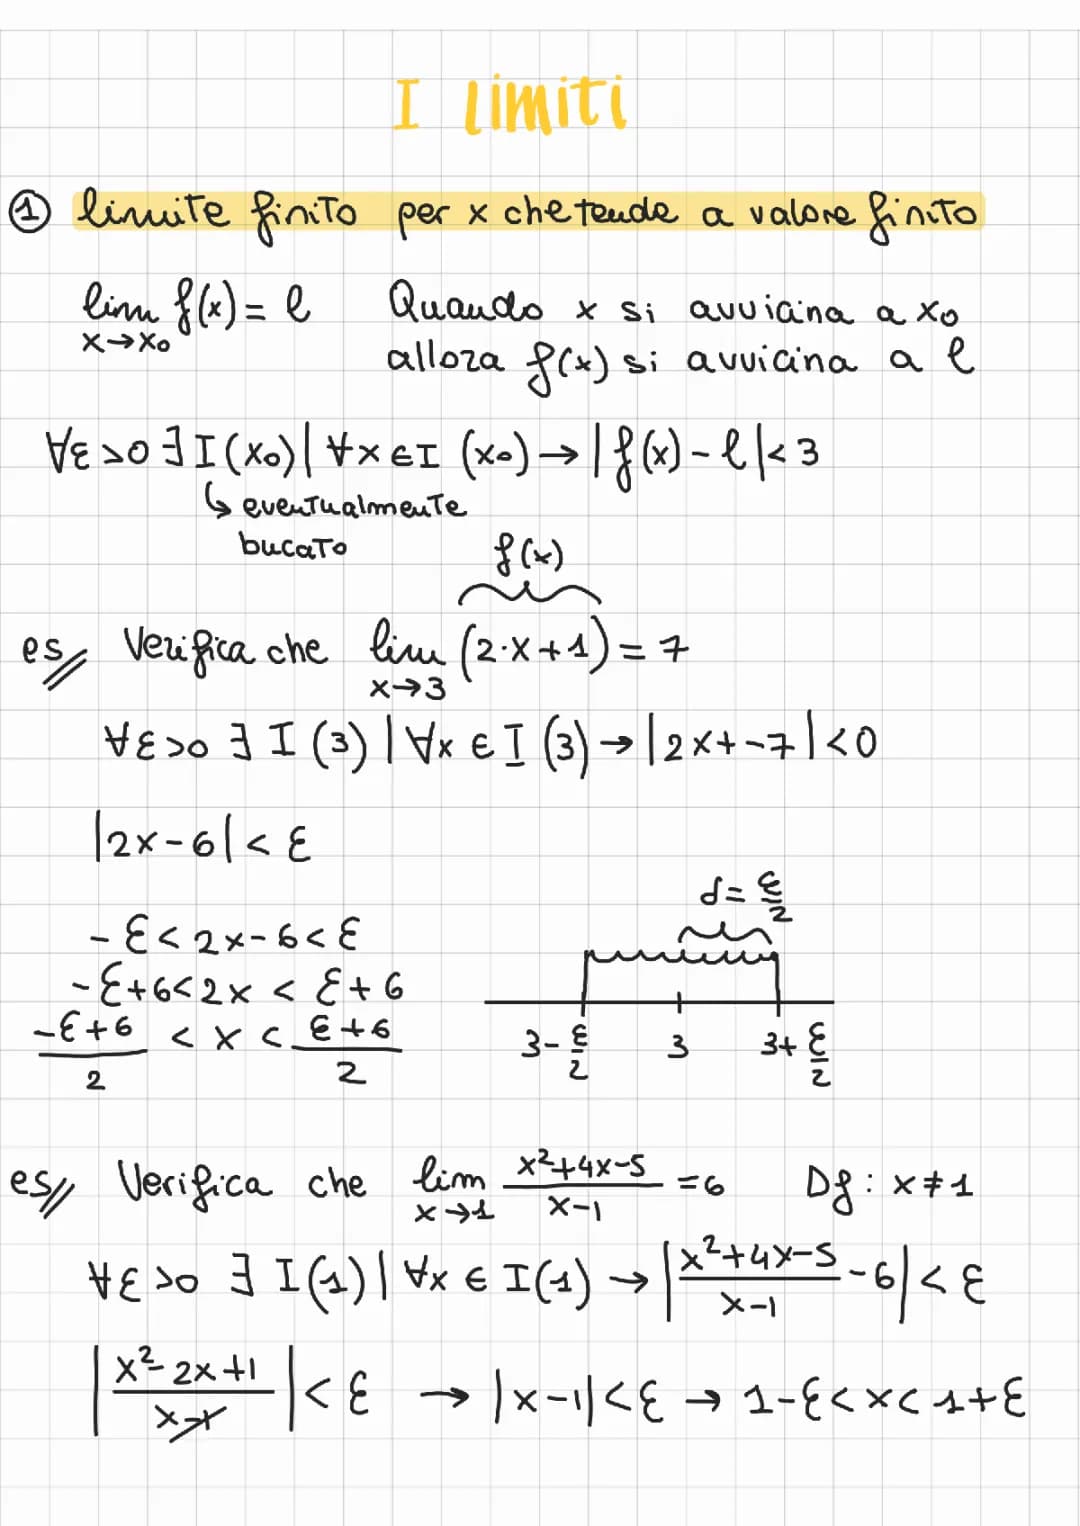 I limiti
① limite finito per x che tende a valore finito
lim f(x) = l Quando x si avvicina a x₀
x→x₀ allora f(x) si avvicina a l
∀ε >0 ∃ I (x₀) | ∀x ∈ I (x₀) → | f(x) - l | < 3
↳ eventualmente
bucato
f(x)
es// Verifica che lim (2·x+1) = 7
x→3
∀ε>0 ∃ I (3) | ∀x ∈ I (3) → | 2x+-7 | <0
|2x-6| < ε
d = ε/2
-ε < 2x-6 < ε
-ε+6 < 2x < ε+6
(-ε+6)/2 < x < (ε+6)/2
3-ε/2 3 3+ε/2
es// Verifica che lim (x²+4x-5)/(x-1) = 6 Df : x≠1
x→1
∀ε >0 ∃ I(1) | ∀x ∈ I(1) → | (x²+4x-5)/(x-1) -6 | < ε
| (x²-2x+1)/(x-1) | < ε → |x-1| < ε → 1-ε < x < 1+ε